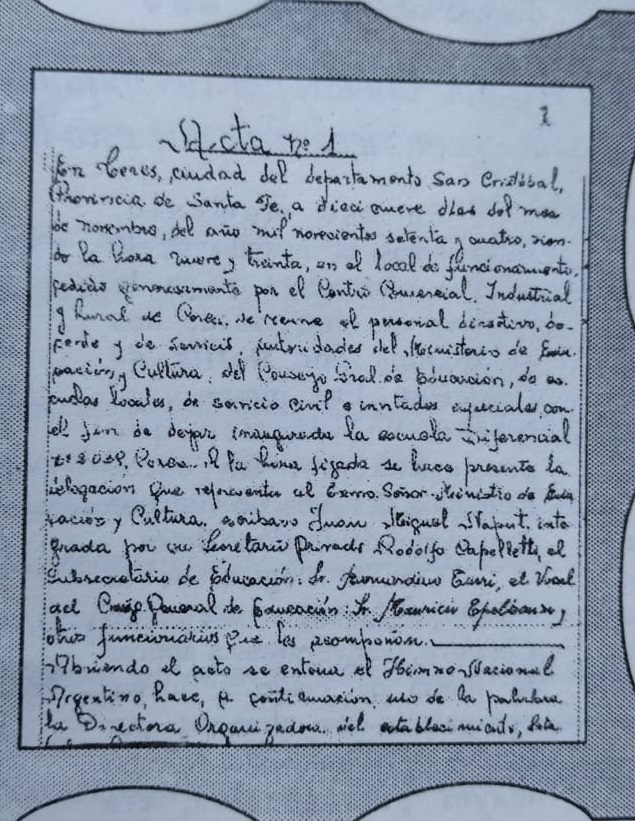 1
Acta nº 1
En Ceres, ciudad del departamento San Cristóbal,
Provincia de Santa Fe, a diecinueve días del mes
de noviembre, del año mil novecientos setenta y cuatro, sien-
do la hora nueve y treinta, en el local de funcionamiento,
cedido generosamente por el Centro Comercial, Industrial
y Rural de Ceres, se reune el personal directivo, do-
cente y de servicio, autoridades del Ministerio de Edu-
cación y Cultura, del Consejo Gral. de Educación, de es-
cuelas locales, de servicio civil e invitados especiales, con
el fin de dejar inaugurada la escuela Diferencial
Ceres. A la hora fijada se hace presente la
delegación que representa al Excmo. Señor Ministro de Edu
cación y Cultura, escribano Juan Miguel inte
grada por su Secretario Privado Rodolfo Capelletti, el
Subsecretario de Educación: Sr. el Vocal
del Consejo General de Educación: Sr. Mauricio y
otros funcionarios que los acompañan.
Abriendo el acto se entona el Himno Nacional
Argentino, hace, a continuación, uso de la palabra
la Directora Organizadora del establecimiento,